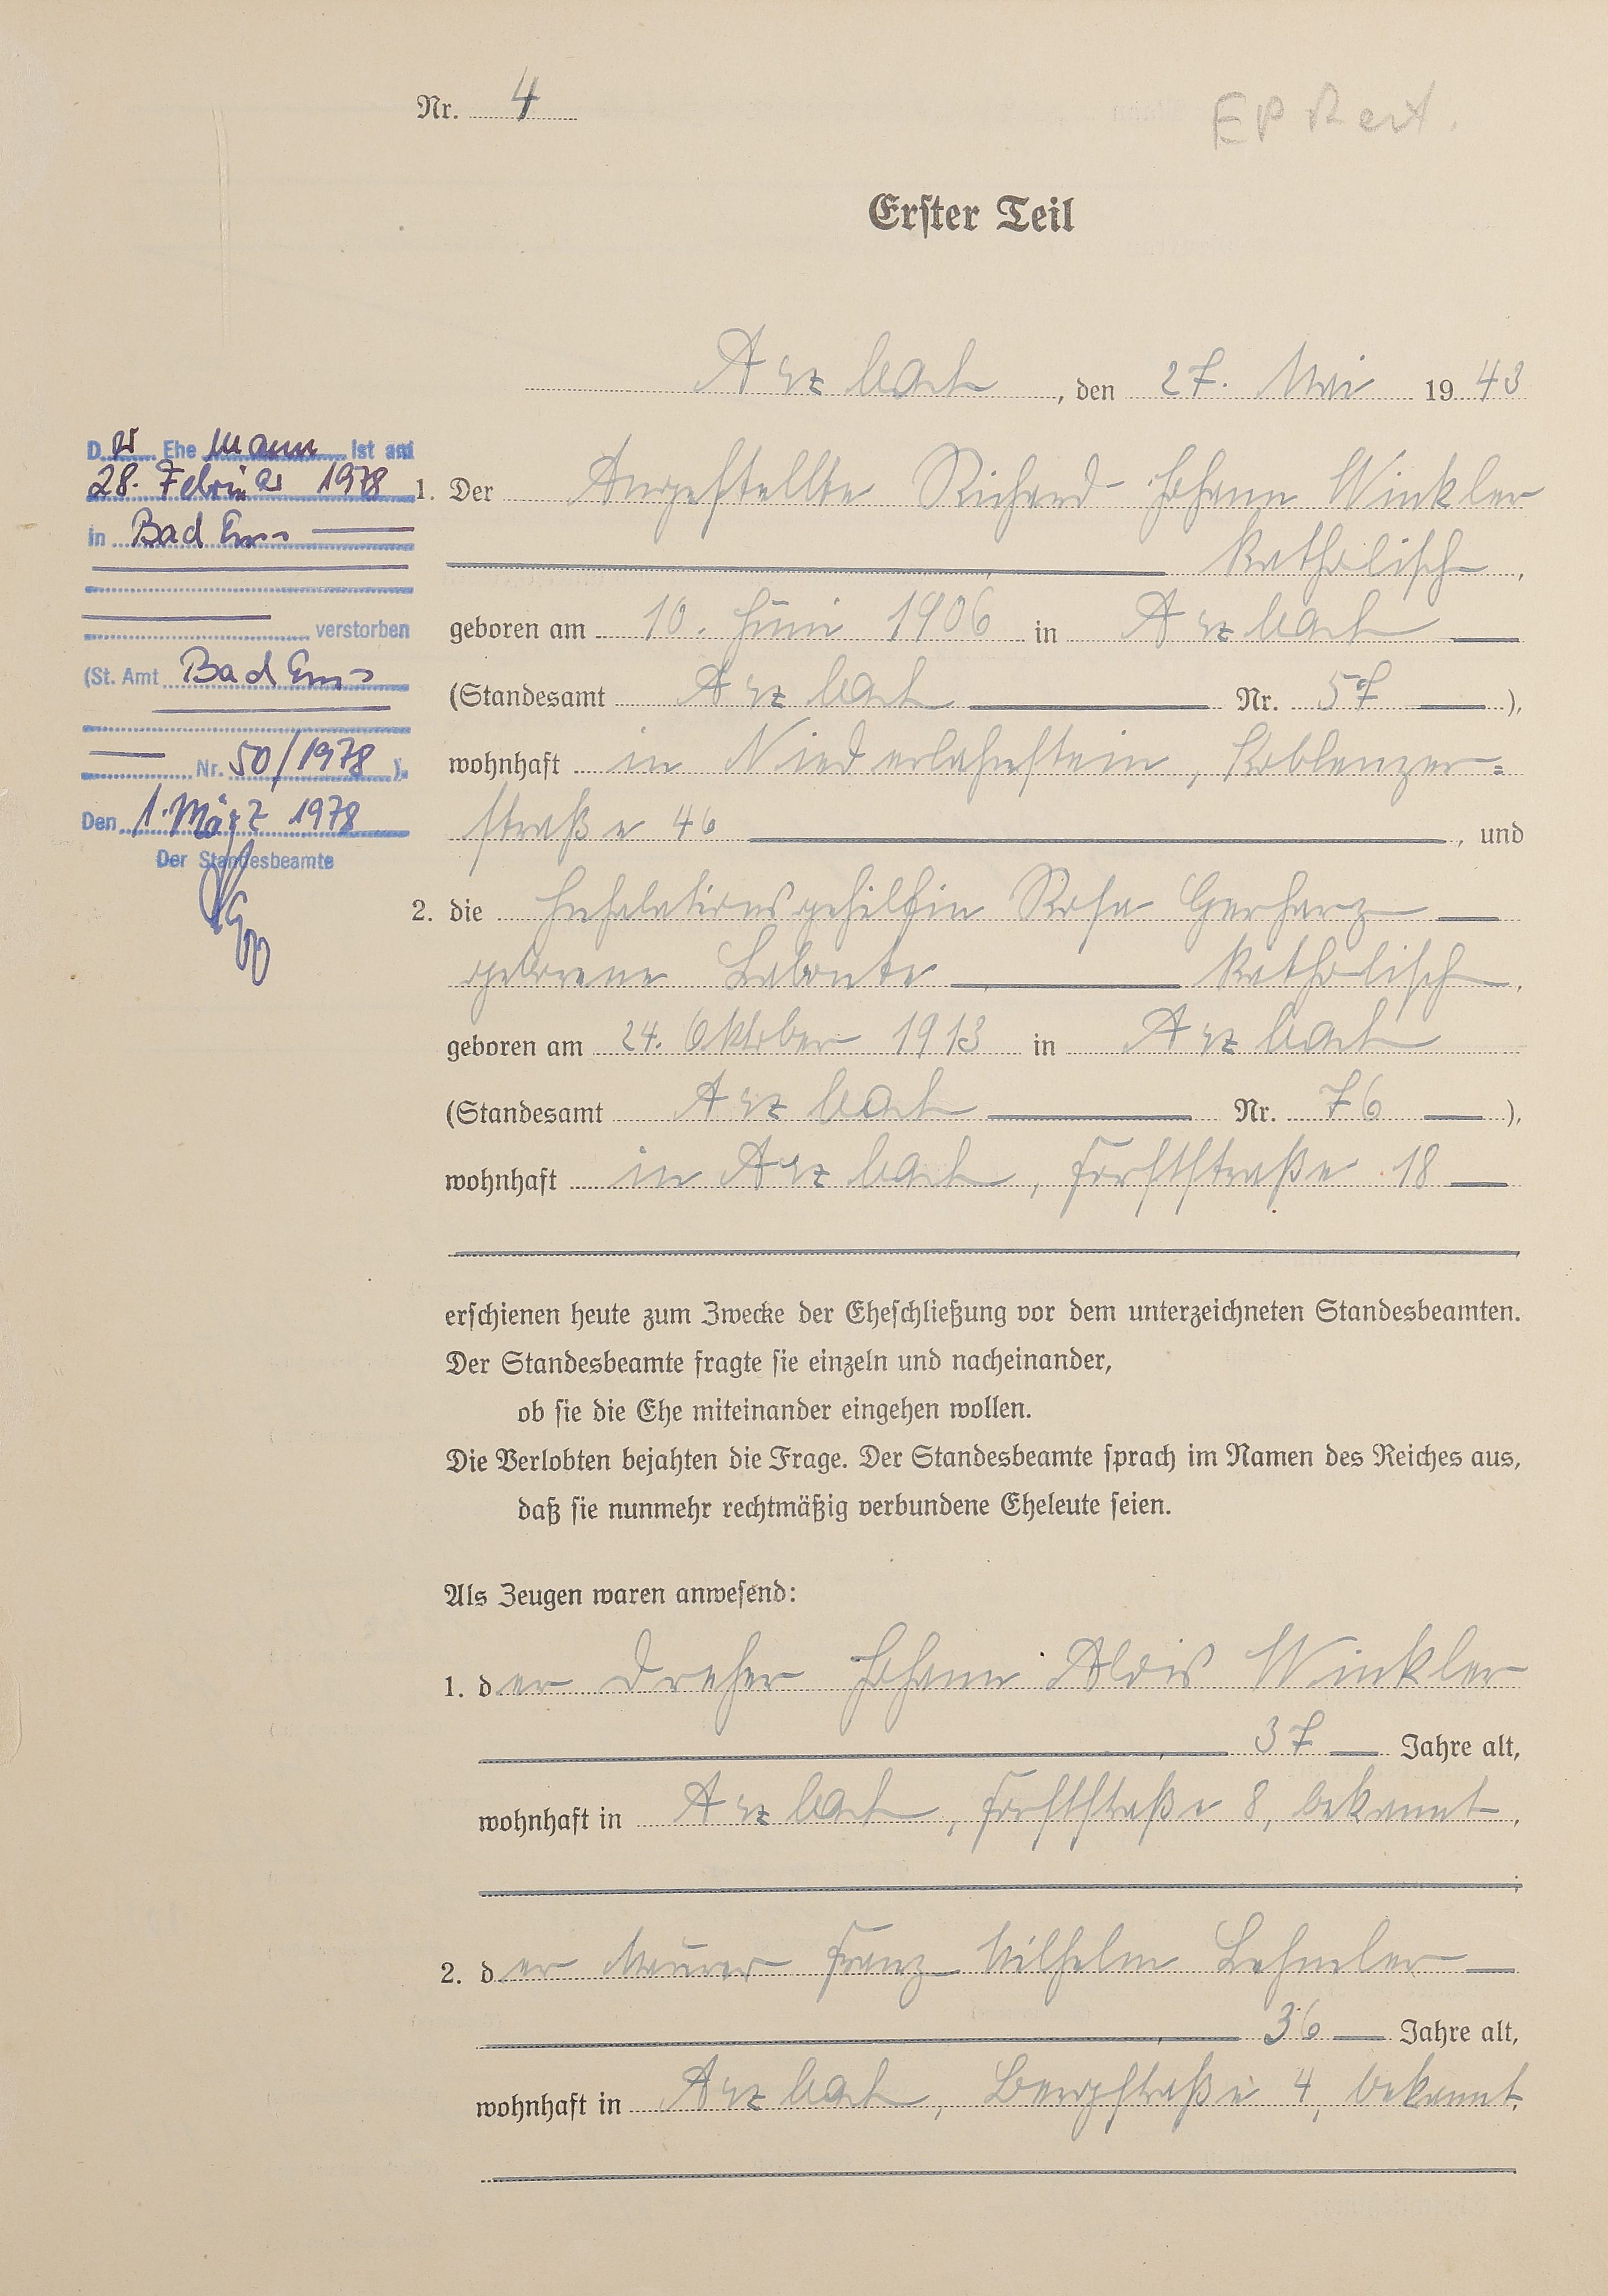 Nr. 4
EP
Erster Teil
Arzbach, den 27. Mai 1943
D er Ehe mann ist am
28. Februar 1978
in Bad Ems
verstorben
(St. Amt Bad Ems
Nr. 50/1978 ).
Den 1. März 1978
Der Standesbeamte
1. Der Angestellte Richard Johann Winkler
katholisch,
geboren am 10. Juni 1906 in Arzbach
(Standesamt Arzbach Nr. 57 ),
wohnhaft in Niederlahnstein, Koblenzer=
straße 46, und
2. die Inhalationsgehilfin Rosa Gerharz
geborene Labonte katholisch,
geboren am 24. Oktober 1913 in Arzbach
(Standesamt Arzbach Nr. 76 ),
wohnhaft in Arzbach, Forststraße 18
erschienen heute zum Zwecke der Eheschließung vor dem unterzeichneten Standesbeamten.
Der Standesbeamte fragte sie einzeln und nacheinander,
ob sie die Ehe miteinander eingehen wollen.
Die Verlobten bejahten die Frage. Der Standesbeamte sprach im Namen des Reiches aus,
daß sie nunmehr rechtmäßig verbundene Eheleute seien.
Als Zeugen waren anwesend:
1. der Dreher Johann Alois Winkler
37 Jahre alt,
wohnhaft in Arzbach, Forststraße 8, bekannt,
;
2. der Maurer Franz Wilhelm Lehmler
36 Jahre alt,
wohnhaft in Arzbach, Bergstraße 4, bekannt.